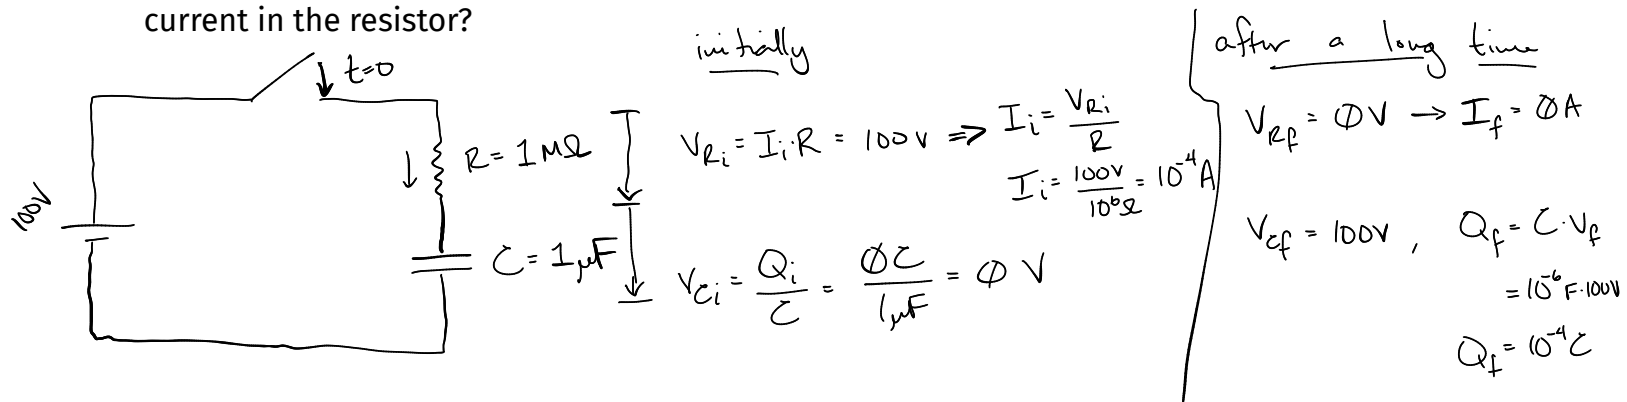 current in the resistor?
t=0
100V
R = 1 MΩ
C = 1 μF
initially
V_Ri = I_i·R = 100V ⇒ I_i = V_Ri / R
I_i = 100V / 10⁶Ω = 10⁻⁴ A
V_Ci = Q_i / C = 0C / 1μF = 0 V
after a long time
V_Rf = 0V → I_f = 0A
V_Cf = 100V , Q_f = C·V_f
= 10⁻⁶ F·100V
Q_f = 10⁻⁴ C